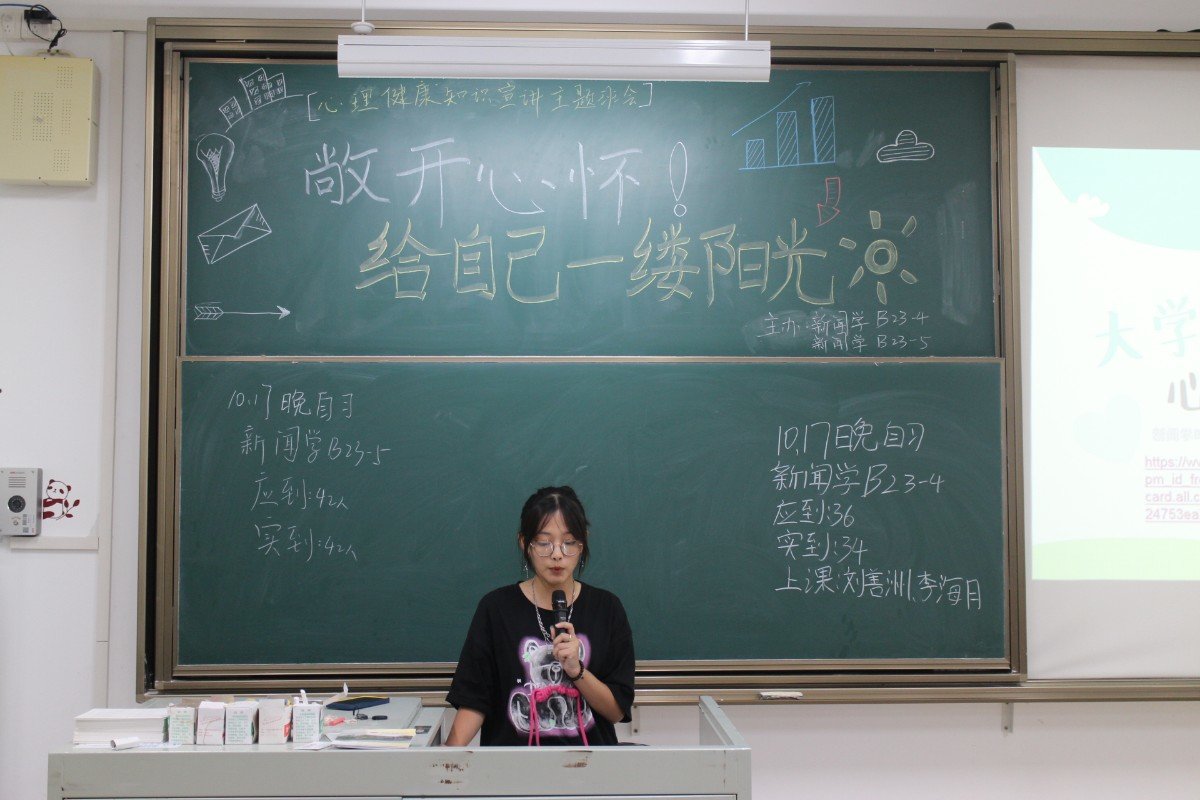 [心理健康知识宣讲主题班会]
敞开心怀!
给自己一缕阳光
主办:新闻学B23-4
新闻学B23-5
10.17晚自习
新闻学B23-5
应到:42人
实到:42人
10.17晚自习
新闻学B23-4
应到:36
实到:34
上课:刘善洲、李海月
大学
心
https://w
pm_id_fr
card.all.c
24753ea